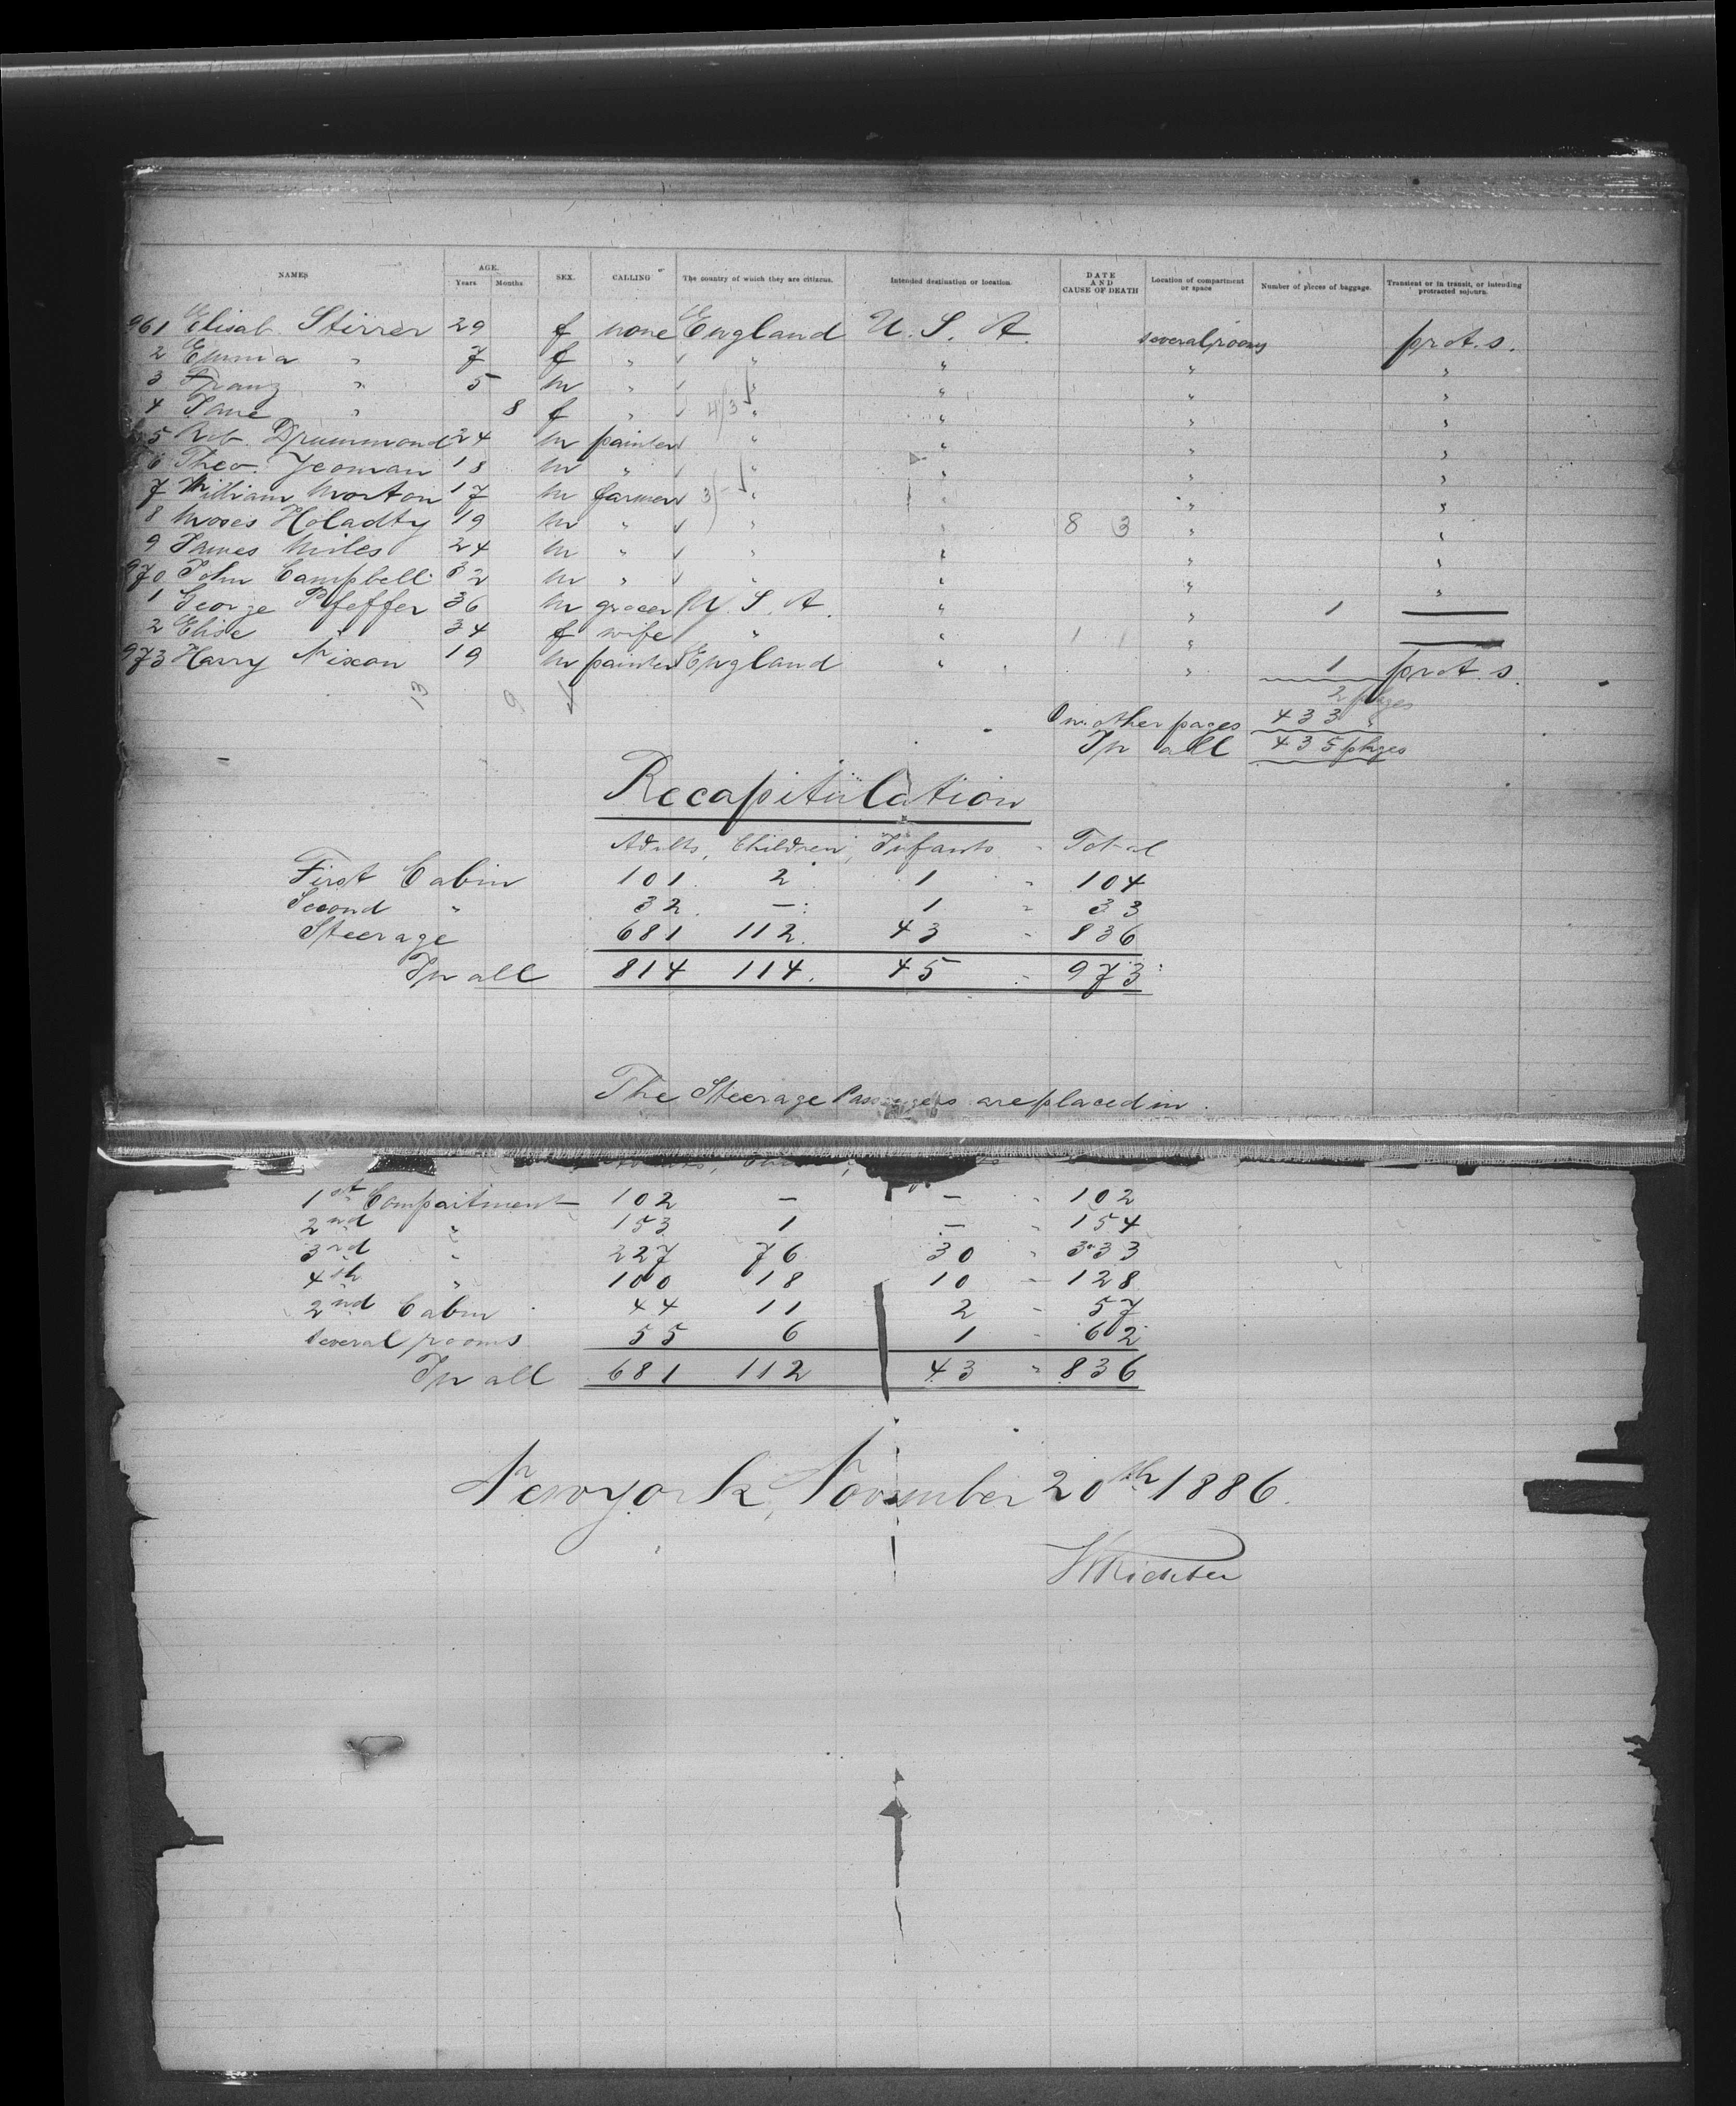 NAMES AGE. Years Months SEX. CALLING The country of which they are citizens. Intended destination or location. DATE AND CAUSE OF DEATH Location of compartment or space Number of pieces of baggage. Transient or in transit, or intending protracted sojourn.
961 Elisab. Stirrer 29 f none England U. S. A. several rooms prot. s.
2 Emma " 7 f " " " " "
3 Franz " 5 m " " " " "
4 Jane " 8 f " " " " "
5 Rob. Drummond 24 m painter " " " "
6 Theo. Yeoman 18 m " " " " "
7 William Morton 17 m farmer " " " "
8 Moses Holadty 19 m " " " 8 3 " "
9 James Miles 24 m " " " " "
970 John Campbell 32 m " " " " "
1 George Pfeffer 36 m grocer U. S. A. " " 1 —
2 Elise " 34 f wife " " 1 1 " —
973 Harry Nixon 19 m painter England " " 1 prot. s.
13 9 4 2 pkges
On other pages 433 "
In all 435 pkges
Recapitülation
Adults, Children, Infants - Total
First Cabin 101. 2 1 - 104
Second " 32. — 1 - 33
Steerage 681 112. 43 - 836
In all 814 114. 45 - 973
The Steerage Passengers are placed in
1st Compartment 102 — — - 102
2nd " 153 1 — - 154
3rd " 227 76 30 - 333
4th " 100 18 10 - 128
2nd Cabin 44 11 2 - 57
several rooms 55 6 1 - 62
In all 681 112 43 - 836
Newyork, November 20th 1886.
HRichter